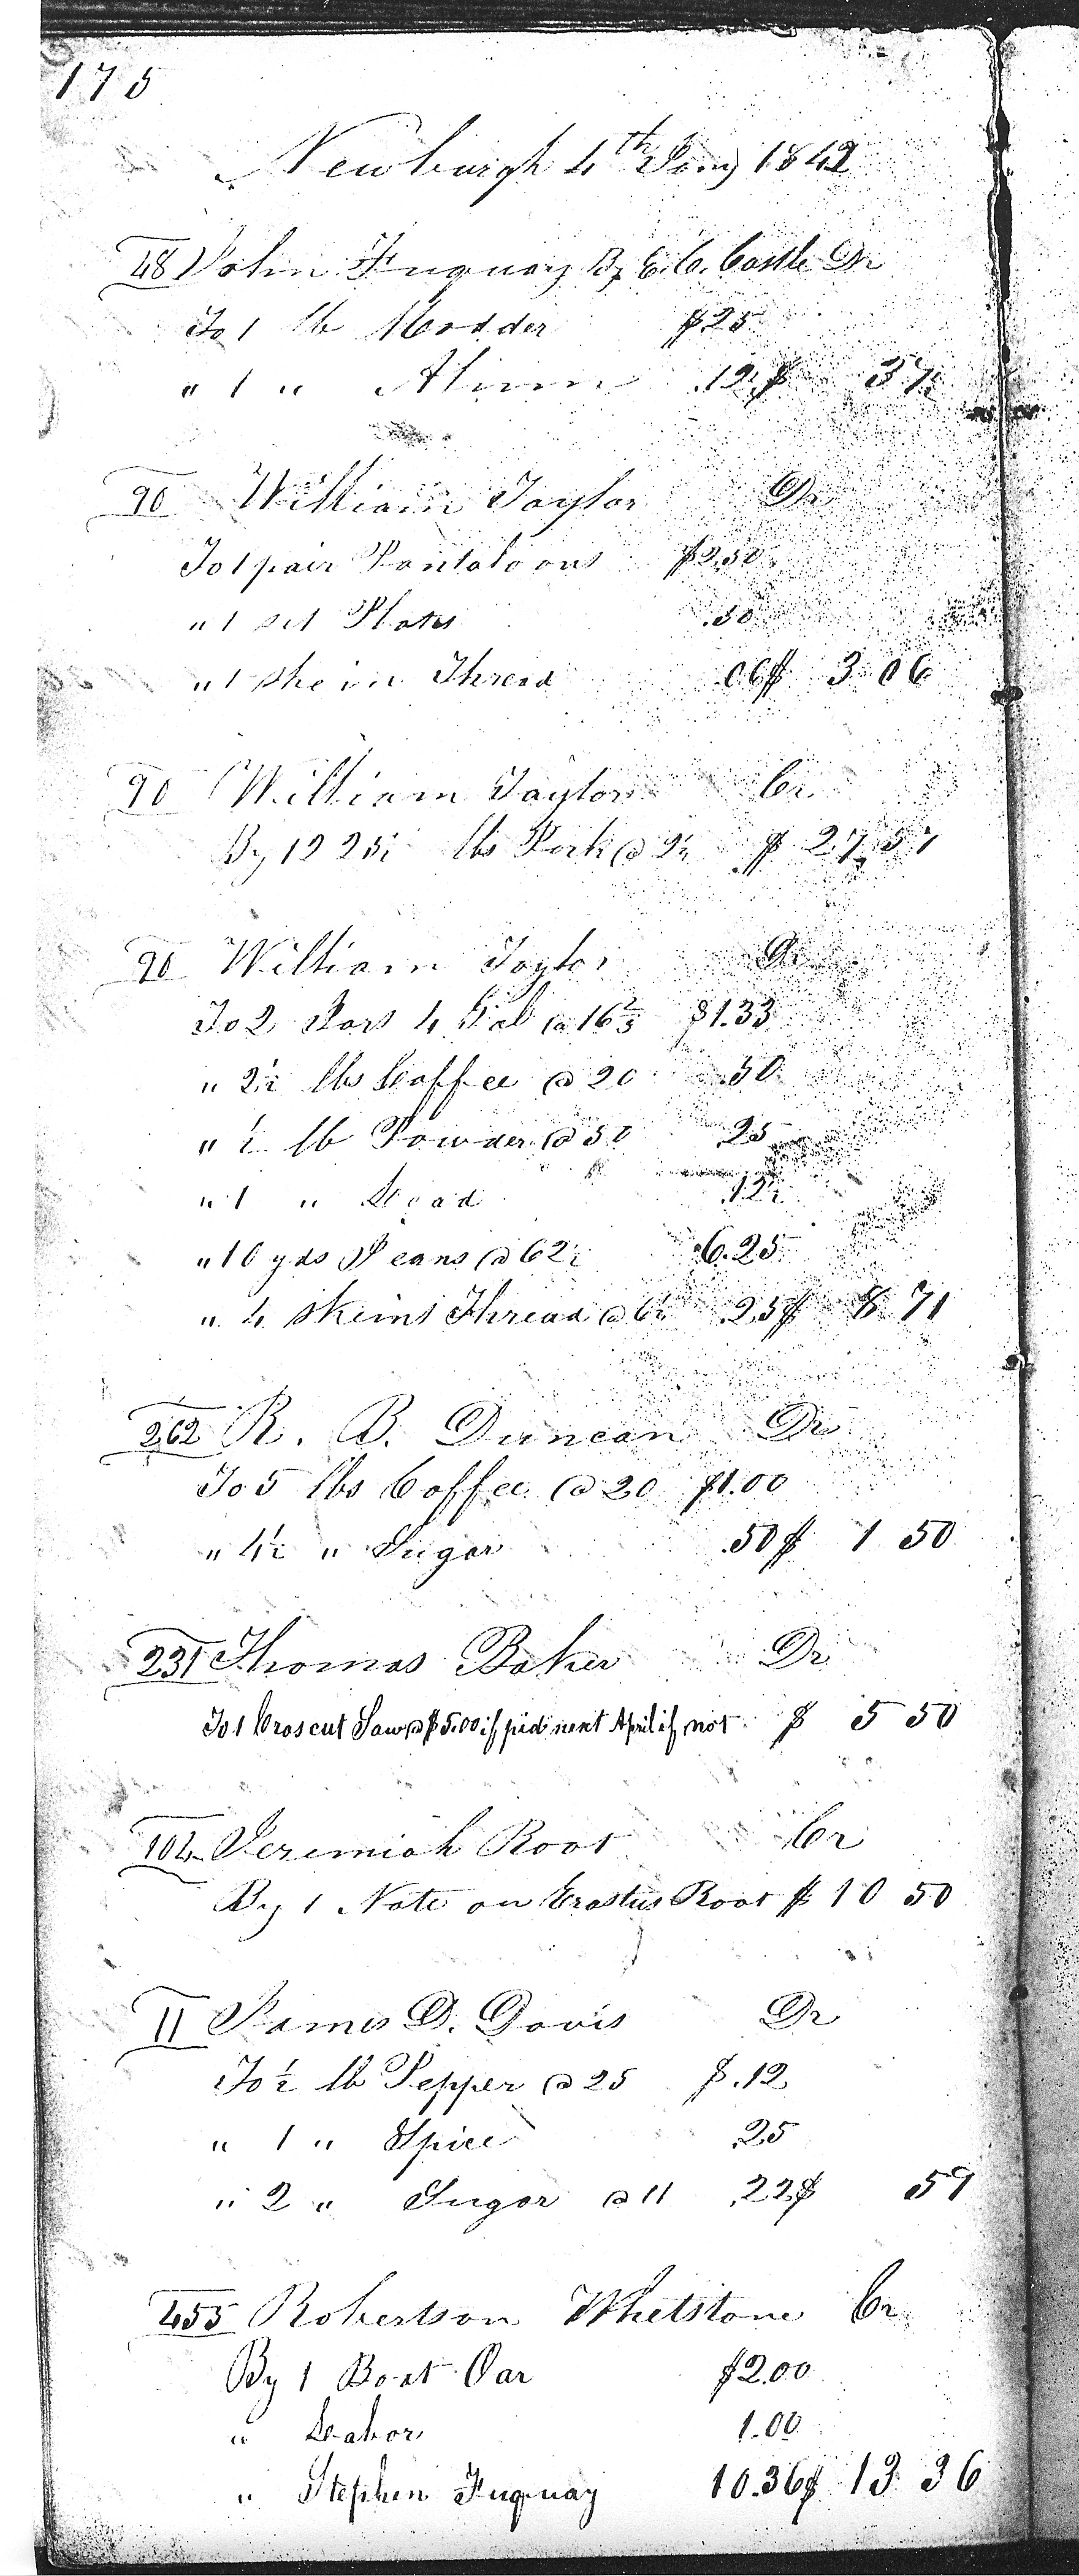 175
Newburgh 4th Jany 1842
48 John Fuquay By E.C. Castle Dr
To 1 lb Madder $.25
" 1 " Alum .12½ $ 37½
90 William Taylor Dr
To 1 pair Pantaloons $2.50
" 1 set Plates .50
" 1 skein Thread .06 $ 3 06
90 William Taylor Cr
By 1225½ lbs Pork @ 2¼ $ 27,57
90 William Taylor Dr
To 2 Jars 4 Gal @ 16⅔ $1.33
" 2½ lbs Coffee @ 20 .50
" ½ lb Powder @ 50 .25
" 1 " Lead .12½
" 10 yds Jeans @ 62½ 6.25
" 4 skeins Thread @ 6¼ .25 $ 8 71
262 R. B. Duncan Dr
To 5 lbs Coffee @ 20 $1.00
" 4½ " Sugar .50 $ 1 50
231 Thomas Baker Dr
To 1 Croscut Saw @ $5.00 if pid next April if not $ 5 50
104 Jeremiah Root Cr
By 1 Note on Erastus Root $ 10 50
11 James D. Davis Dr
To ½ lb Pepper @ 25 $.12
" 1 " Spice .25
" 2 " Sugar @ 11 .22 $ 59
455 Robertson Whetstone Cr
By 1 Boat Oar $2.00
" Labor 1.00
" Stephen Fuquay 10.36 $ 13 36